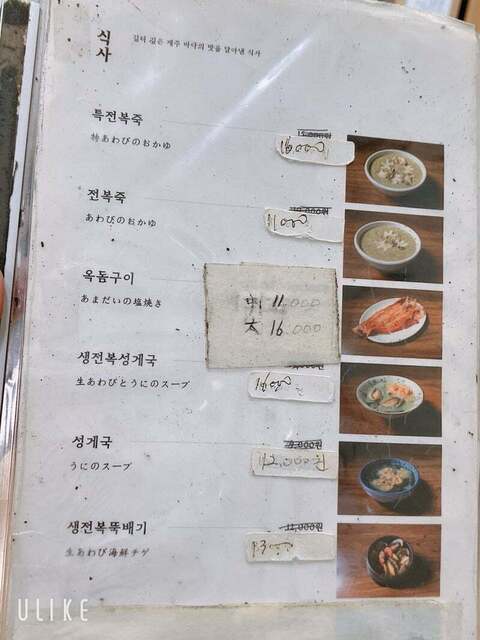 식사
깊디 깊은 제주 바다의 맛을 담아낸 식사
특전복죽
特あわびのおかゆ
16,000
전복죽
あわびのおかゆ
11000
옥돔구이
あまだいの塩焼き
中 11,000
大 16,000
생전복성게국
生あわびとうにのスープ
16000
성게국
9,000원
うにのスープ
12,000원
생전복뚝배기
11,000원
生あわび海鮮チゲ
ULIKE